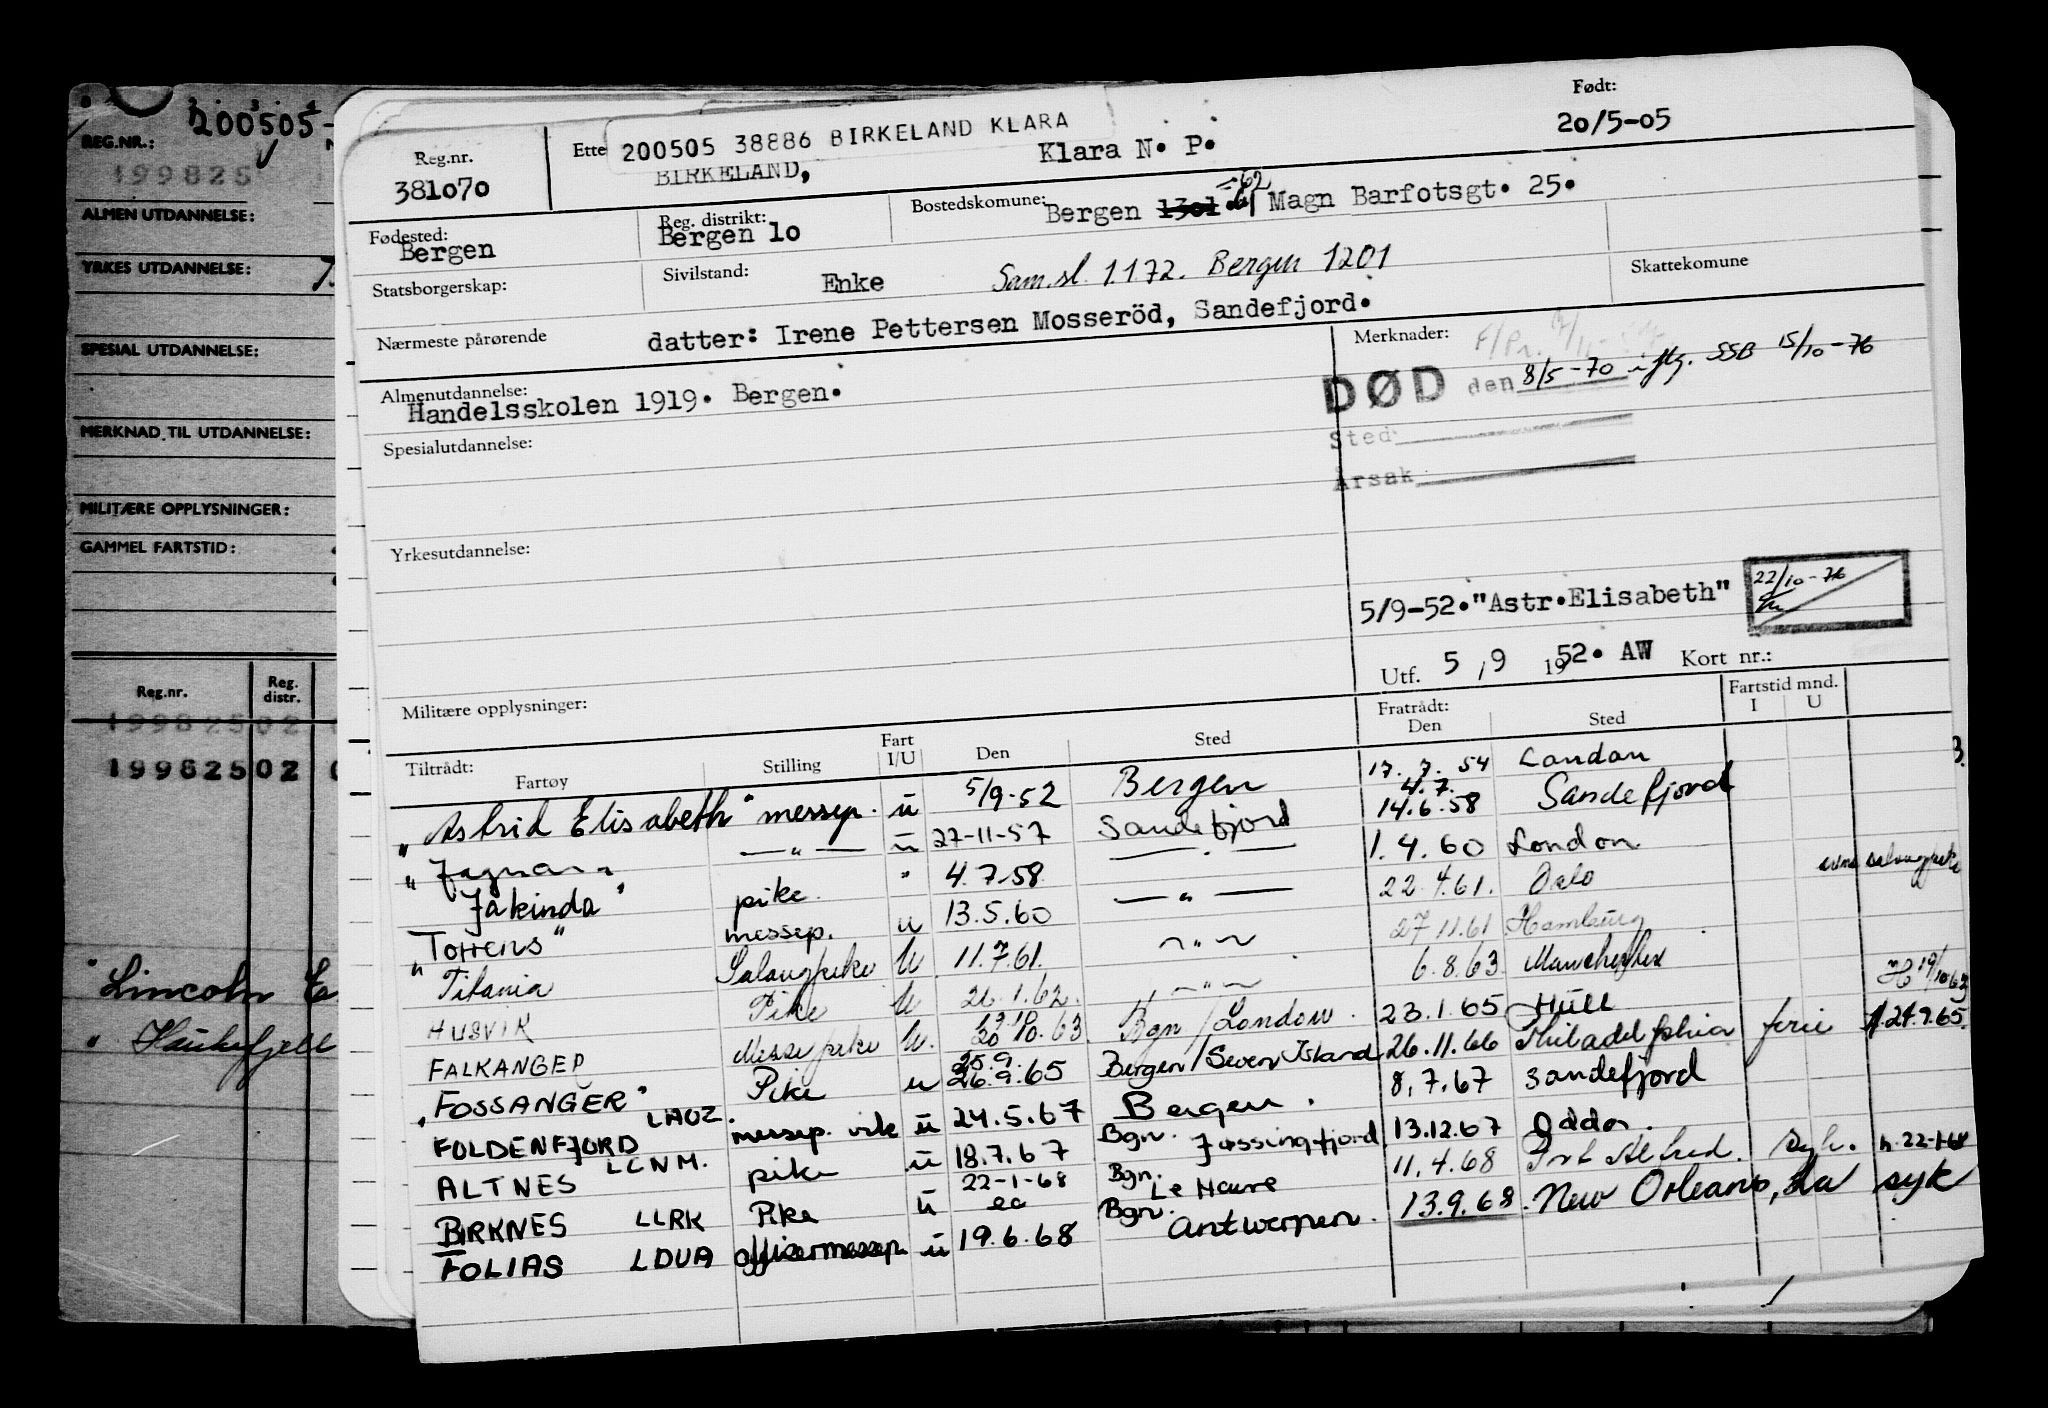 200505-
REG.NR.:
199825
ALMEN UTDANNELSE:
YRKES UTDANNELSE:
SPESIAL UTDANNELSE:
MERKNAD TIL UTDANNELSE:
MILITÆRE OPPLYSNINGER:
GAMMEL FARTSTID:
Reg.nr. Reg. distr.
199825 02
199825 02
" Lincoln
" Haukefjell
Født:
20/5-05
Reg.nr.
381070
Ette 200505 38886 BIRKELAND KLARA
BIRKELAND, Klara N. P.
Fødested:
Bergen
Reg. distrikt:
Bergen 10
Bostedskomune: Bergen 1301 -62 Magn Barfotsgt. 25.
Statsborgerskap:
Sivilstand: Enke Sam.sl. 1.1.72. Bergen 1201
Skattekomune
Nærmeste pårørende datter: Irene Pettersen Mosseröd, Sandefjord.
Merknader:
Almenutdannelse:
Handelsskolen 1919. Bergen.
DØD den 8/5-70 iflg. SSB 15/10-76
Sted
Årsak
Spesialutdannelse:
Yrkesutdannelse:
5/9-52."Astr.Elisabeth" 22/10-76
Utf. 5 / 9 1952. AW Kort nr.:
Militære opplysninger:
Tiltrådt: Fartøy Stilling Fart I/U Den Sted Fratrådt: Den Sted Fartstid mnd. I U
"Astrid Elisabeth" messep. u 5/9-52 Bergen 17.7.54 London
" — " — u 27-11-57 Sandefjord 4.7. 14.6.58 Sandefjord
"Jakinda" pike " 4.7.58 — " — 1.4.60 London
"Torrens" messep. u 13.5.60 — " — 22.4.61. Oslo
Titania Salongpike U 11.7.61. — " — 27.11.61 Hamburg
HUSVIK Pike U 26.1.62. — " — 6.8.63 Manchester
FALKANGER Messepike U. 19.10 20.10.63 Bgn / London 23.1.65 Hull 19/10 63
"FOSSANGER" Pike u 25.9. 26.9.65 Bergen / Seven Island 26.11.66 Philadelphia ferie 24.9.65.
FOLDENFJORD LAOZ. messep. vik u 24.5.67 Bergen. 8.7.67 Sandefjord
ALTNES LCNM. pike u 18.7.67 Bgn. Jøssingfjord 13.12.67 Odda.
BIRKNES LLRK Pike u 22-1-68 ca Bgn. Le Havre 11.4.68 Prt Alfred. syk. 22-1-68
FOLIAS LDUA offisermessep. u 19.6.68 Bgn. Antwerpen. 13.9.68. New Orleans, syk